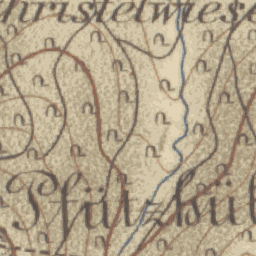 hristelwiese
Pfützhü